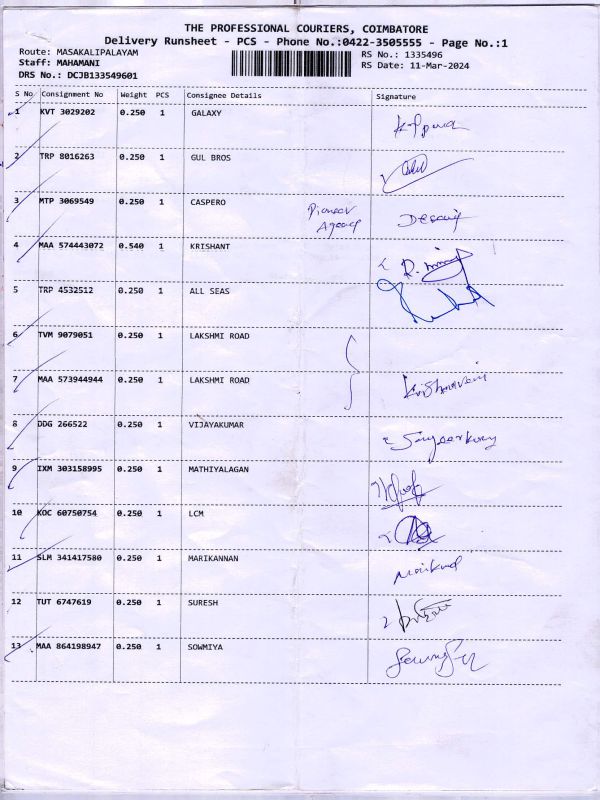 THE PROFESSIONAL COURIERS, COIMBATORE
Delivery Runsheet - PCS - Phone No.:0422-3505555 - Page No.:1
Route: MASAKALIPALAYAM RS No.: 1335496
Staff: MAHAMANI RS Date: 11-Mar-2024
DRS No.: DCJB133549601
S No Consignment No Weight PCS Consignee Details Signature
1 KVT 3029202 0.250 1 GALAXY
2 TRP 8016263 0.250 1 GUL BROS
3 MTP 3069549 0.250 1 CASPERO Pioneer
Agency
4 MAA 574443072 0.540 1 KRISHANT
5 TRP 4532512 0.250 1 ALL SEAS
6 TVM 9079051 0.250 1 LAKSHMI ROAD
7 MAA 573944944 0.250 1 LAKSHMI ROAD Krishnaveni
8 DDG 266522 0.250 1 VIJAYAKUMAR
9 IXM 303158995 0.250 1 MATHIYALAGAN
10 KOC 60750754 0.250 1 LCM
11 SLM 341417580 0.250 1 MARIKANNAN
12 TUT 6747619 0.250 1 SURESH
13 MAA 864198947 0.250 1 SOWMIYA